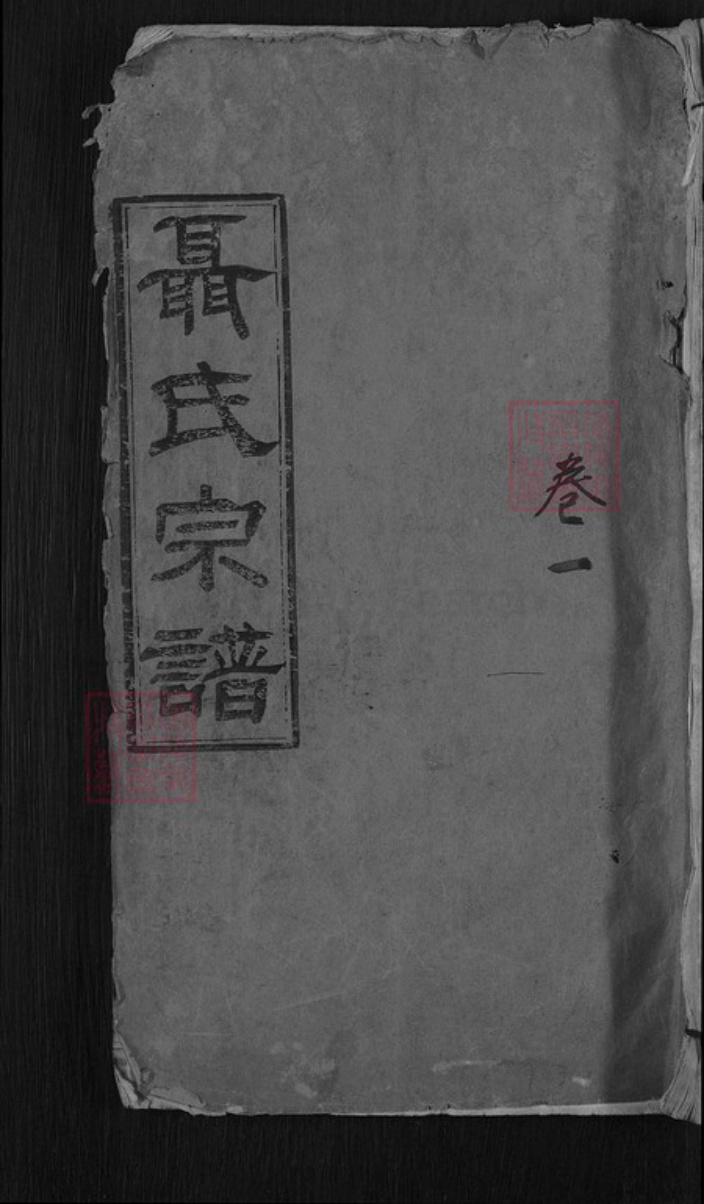 聶氏宗譜
卷一